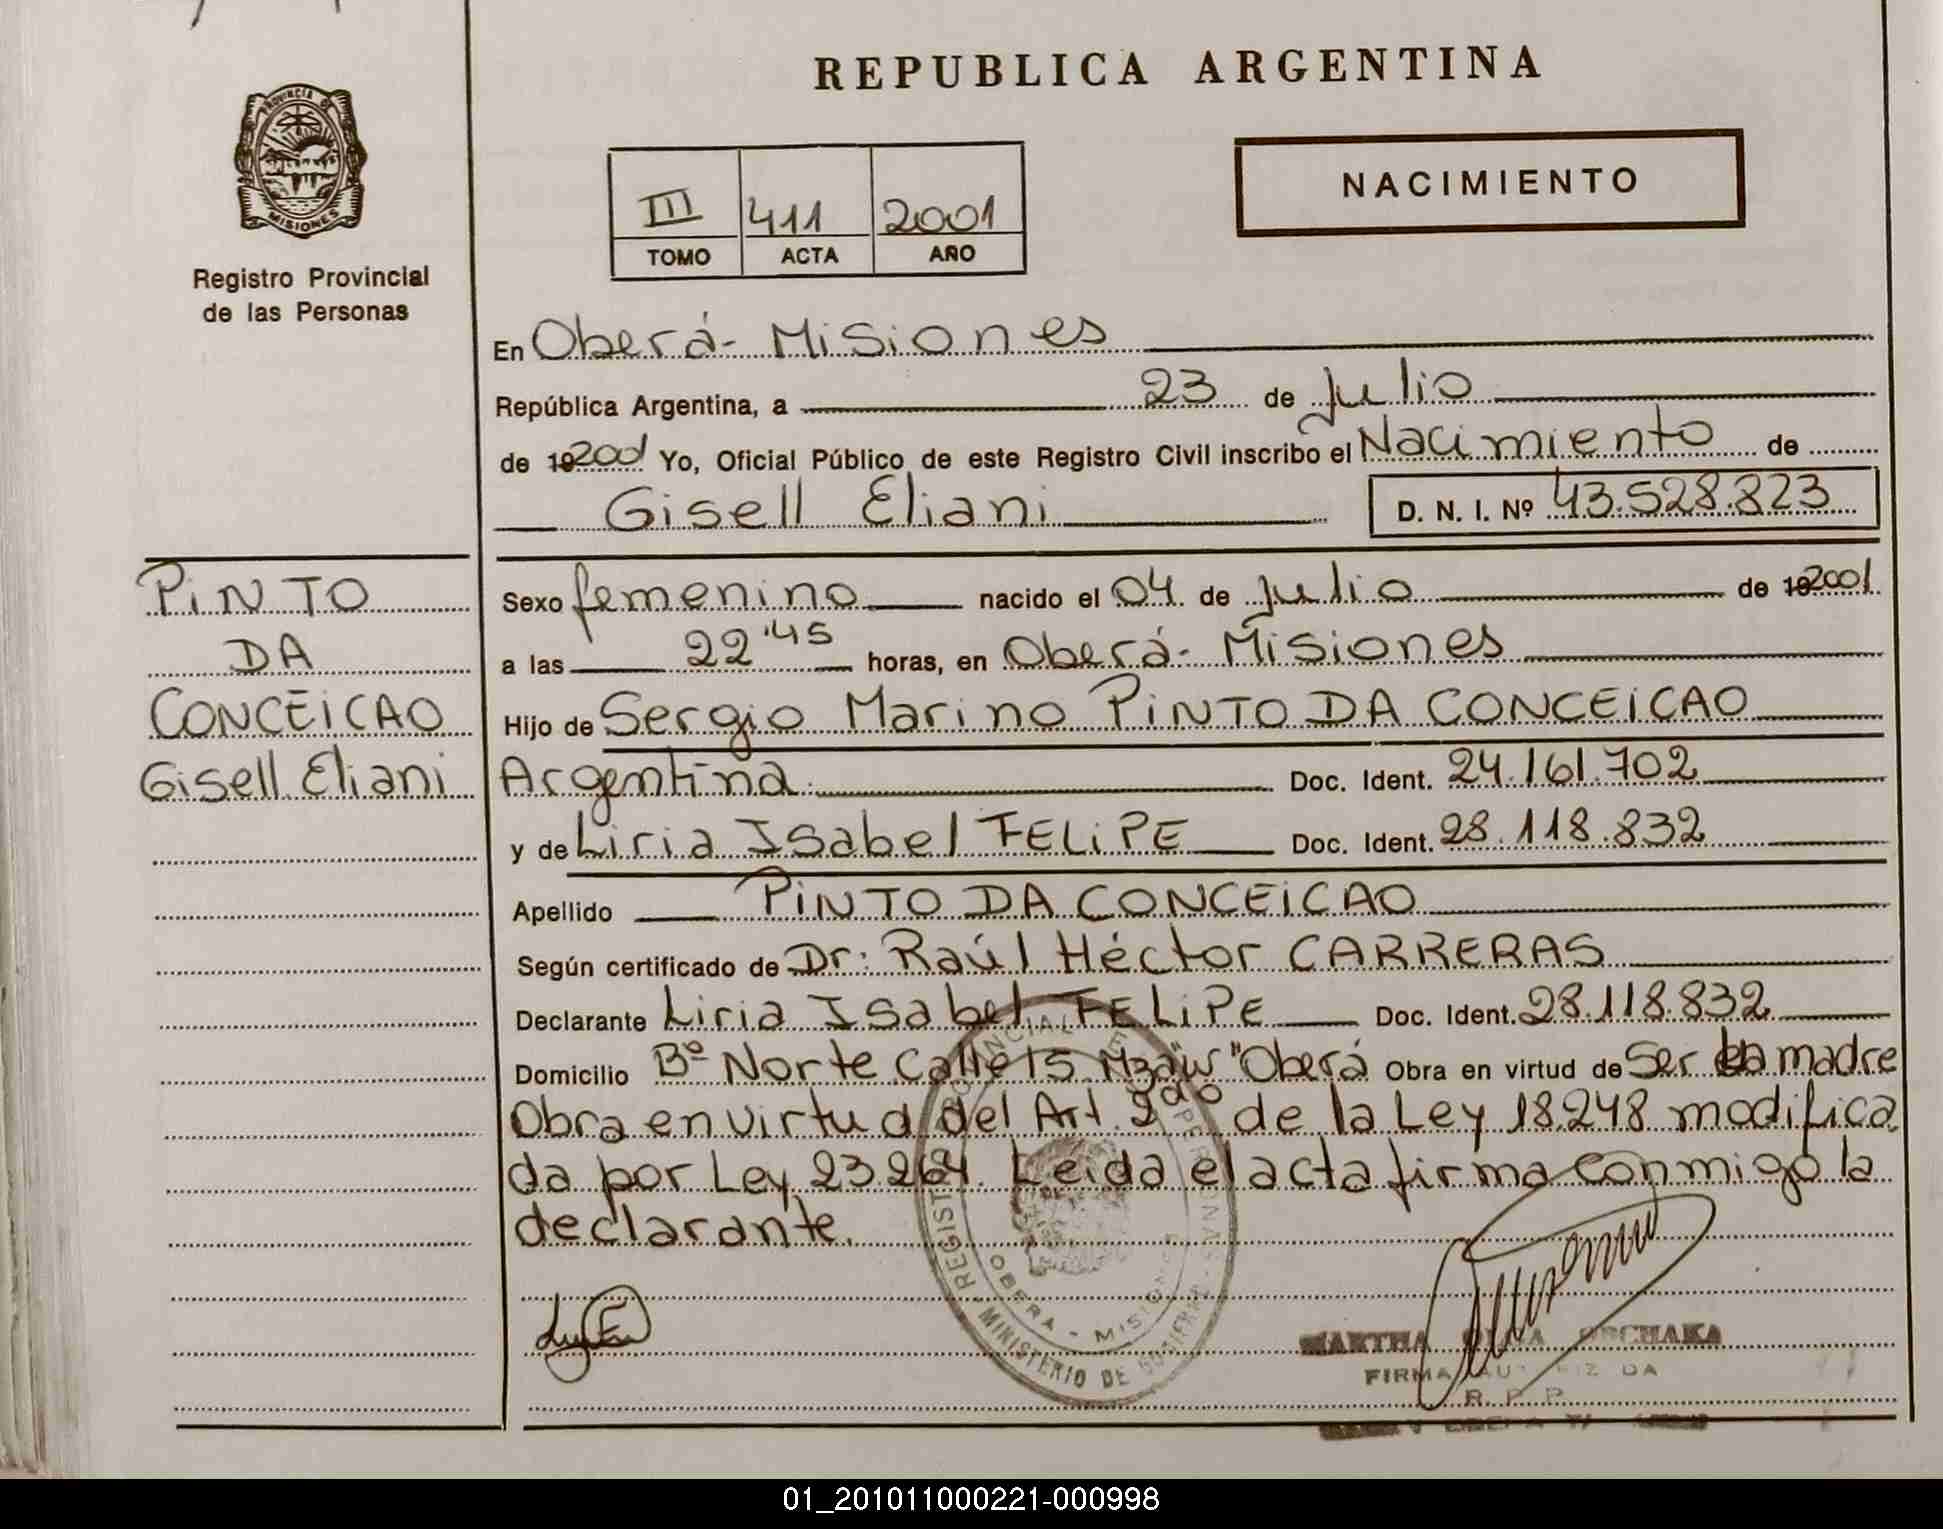 REPUBLICA ARGENTINA
PROVINCIA DE
MISIONES
Registro Provincial
de las Personas
III 411 2001
TOMO ACTA AÑO
NACIMIENTO
En Oberá - Misiones
República Argentina, a 23 de Julio
de 192001 Yo, Oficial Público de este Registro Civil inscribo el Nacimiento de
Gisell Eliani D. N. I. Nº 43.528.823
PINTO
DA
CONCEICAO
Gisell Eliani
Sexo femenino nacido el 04 de Julio de 192001
a las 22'45 horas, en Oberá - Misiones
Hijo de Sergio Marino PINTO DA CONCEICAO
Argentina Doc. Ident. 24.161.702
y de Liria Isabel FELIPE Doc. Ident. 28.118.832
Apellido PINTO DA CONCEICAO
Según certificado de Dr: Raúl Héctor CARRERAS
Declarante Liria Isabel FELIPE Doc. Ident. 28.118.832
Domicilio Bº Norte Calle 15 Mza "W" Oberá Obra en virtud de Ser la madre
Obra en virtud del Art. 2do de la Ley 18.248 modifica
da por Ley 23.264. Leida el acta firma conmigo la
declarante.
OBERA - MISIONES
MINISTERIO DE GOBIERNO
MARTHA OLGA
FIRMA AUTORIZADA
R. P. P.
01_201011000221-000998